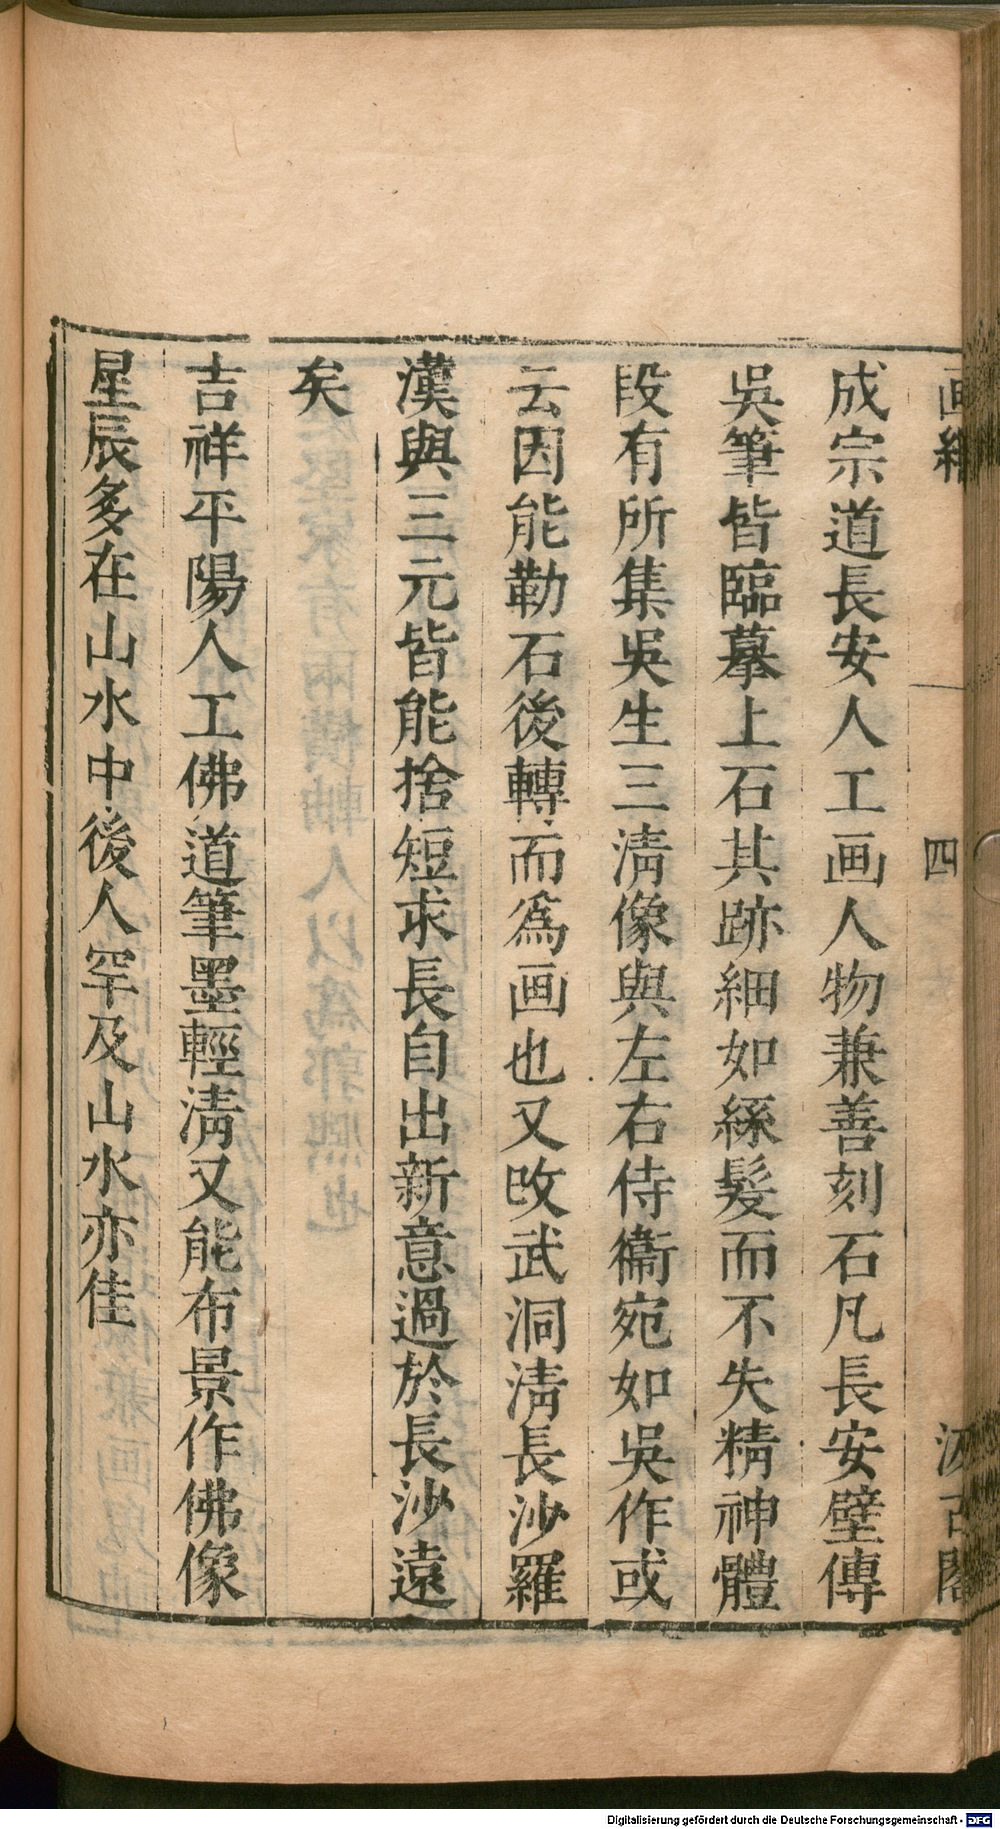 四
成宗道長安人工画人物兼善刻石凡長安壁傳
吳筆皆臨摹上石其跡細如絲髮而不失精神體
段有所集吳生三淸像與左右侍衞宛如吳作或
云因能勒石後轉而爲画也又改武洞淸長沙羅
漢與三元皆能捨短求長自出新意過於長沙遠
矣
吉祥平陽人工佛道筆墨輕淸又能布景作佛像
星辰多在山水中後人罕及山水亦佳
Digitalisierung gefördert durch die Deutsche Forschungsgemeinschaft - DFG